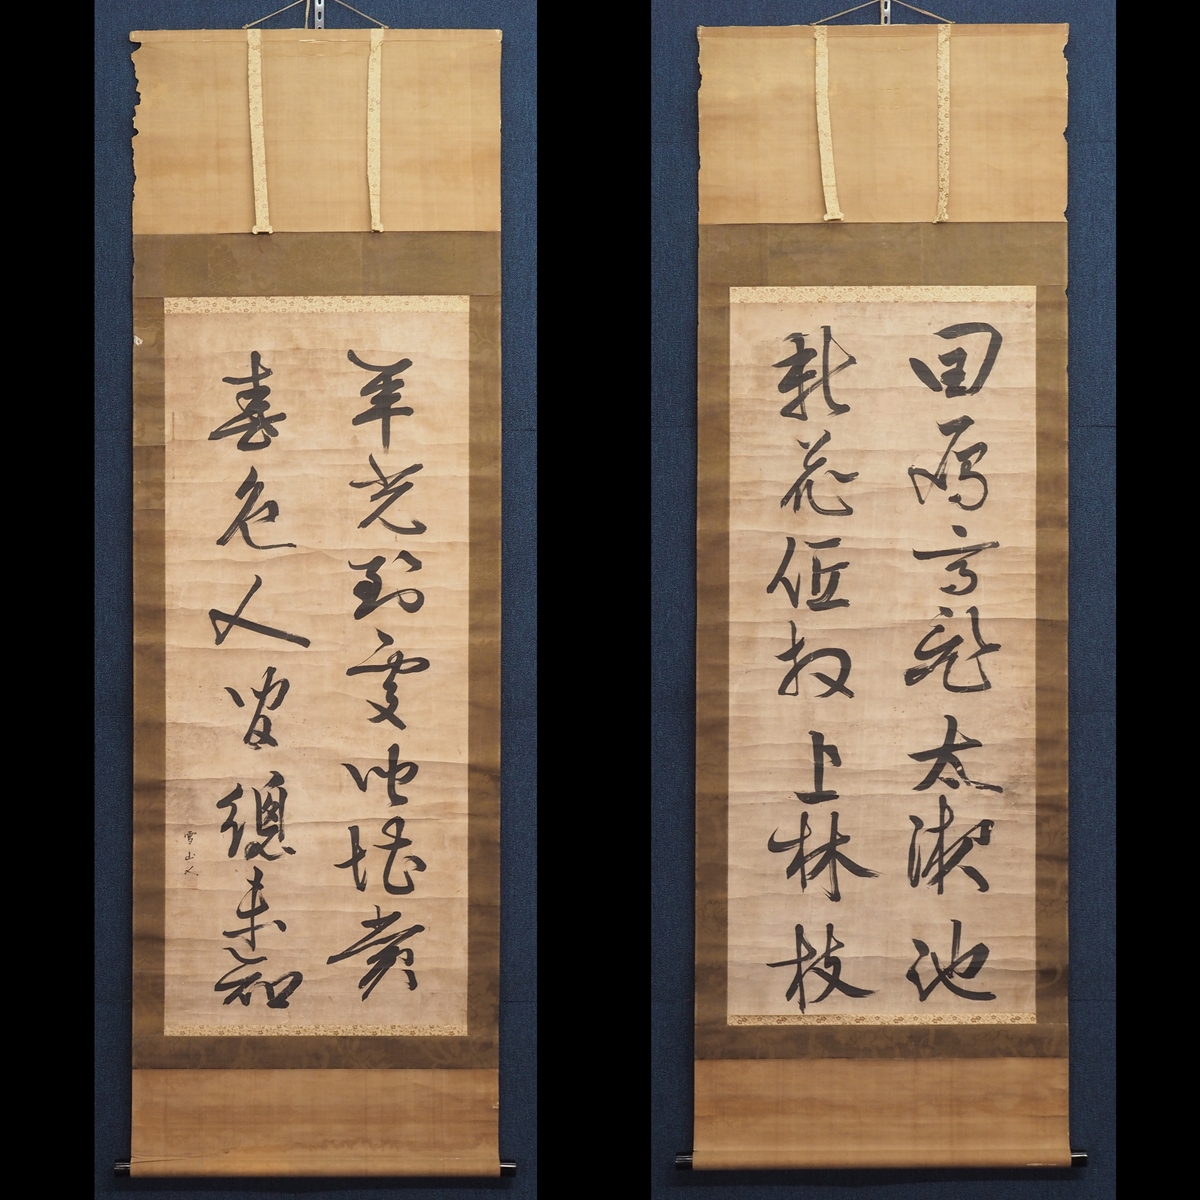 回鴈高飛太液池
新花低枚上林枝
年光到處皆堪賞
春色人間總未知
雪山人